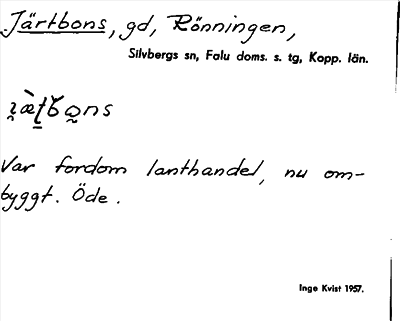 Järtbons, gd, Rönningen,
Silvbergs sn, Falu doms. s. tg, Kopp. län.
Var fordom lanthandel, nu om-
byggt. Öde.
Inge Kvist 1957.